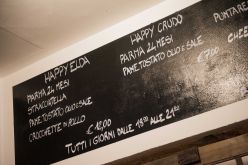 HAPPY ELDA
PARMA 24 MESI
STRACCIATELLA
PANE TOSTATO OLIO E SALE
CROCCHETTE DI POLLO
€ 15,00
HAPPY CRUDO
PARMA 24 MESI
PANE TOSTATO OLIO E SALE
€ 7,00
TUTTI I GIORNI DALLE 18:30 ALLE 21:00
PUNTARE
CHEE